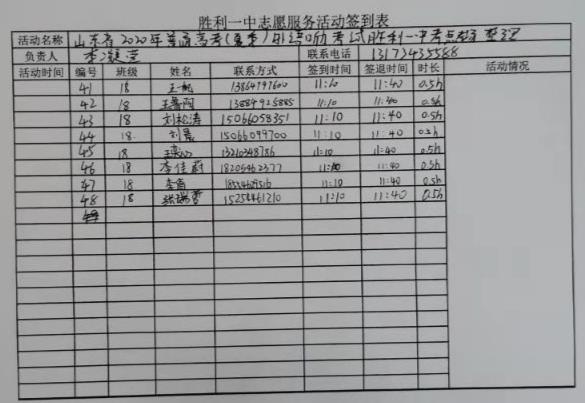 胜利一中志愿服务活动签到表
活动名称 山东省2020年普通高考(夏季)外语听力考试胜利一中考点 整理
负责人 李 联系电话 13173435588
活动时间 编号 班级 姓名 联系方式 签到时间 签退时间 时长 活动情况
41 18 王 13864797600 11:10 11:40 0.5h
42 18 13884925885 11:10 11:40 0.5h
43 18 刘松涛 15066058351 11:10 11:40 0.5h
44 18. 刘 15066099700 11:10 11:40 0.5h
45 18 13210348756 11:10 11:40 0.5h
46 18 李佳蔚 18205462377 11:10 11:40 0.5h
47 18 李 11:10 11:40 0.5h
48 18 张瑞雪 15254461210 11:10 11:40 0.5h